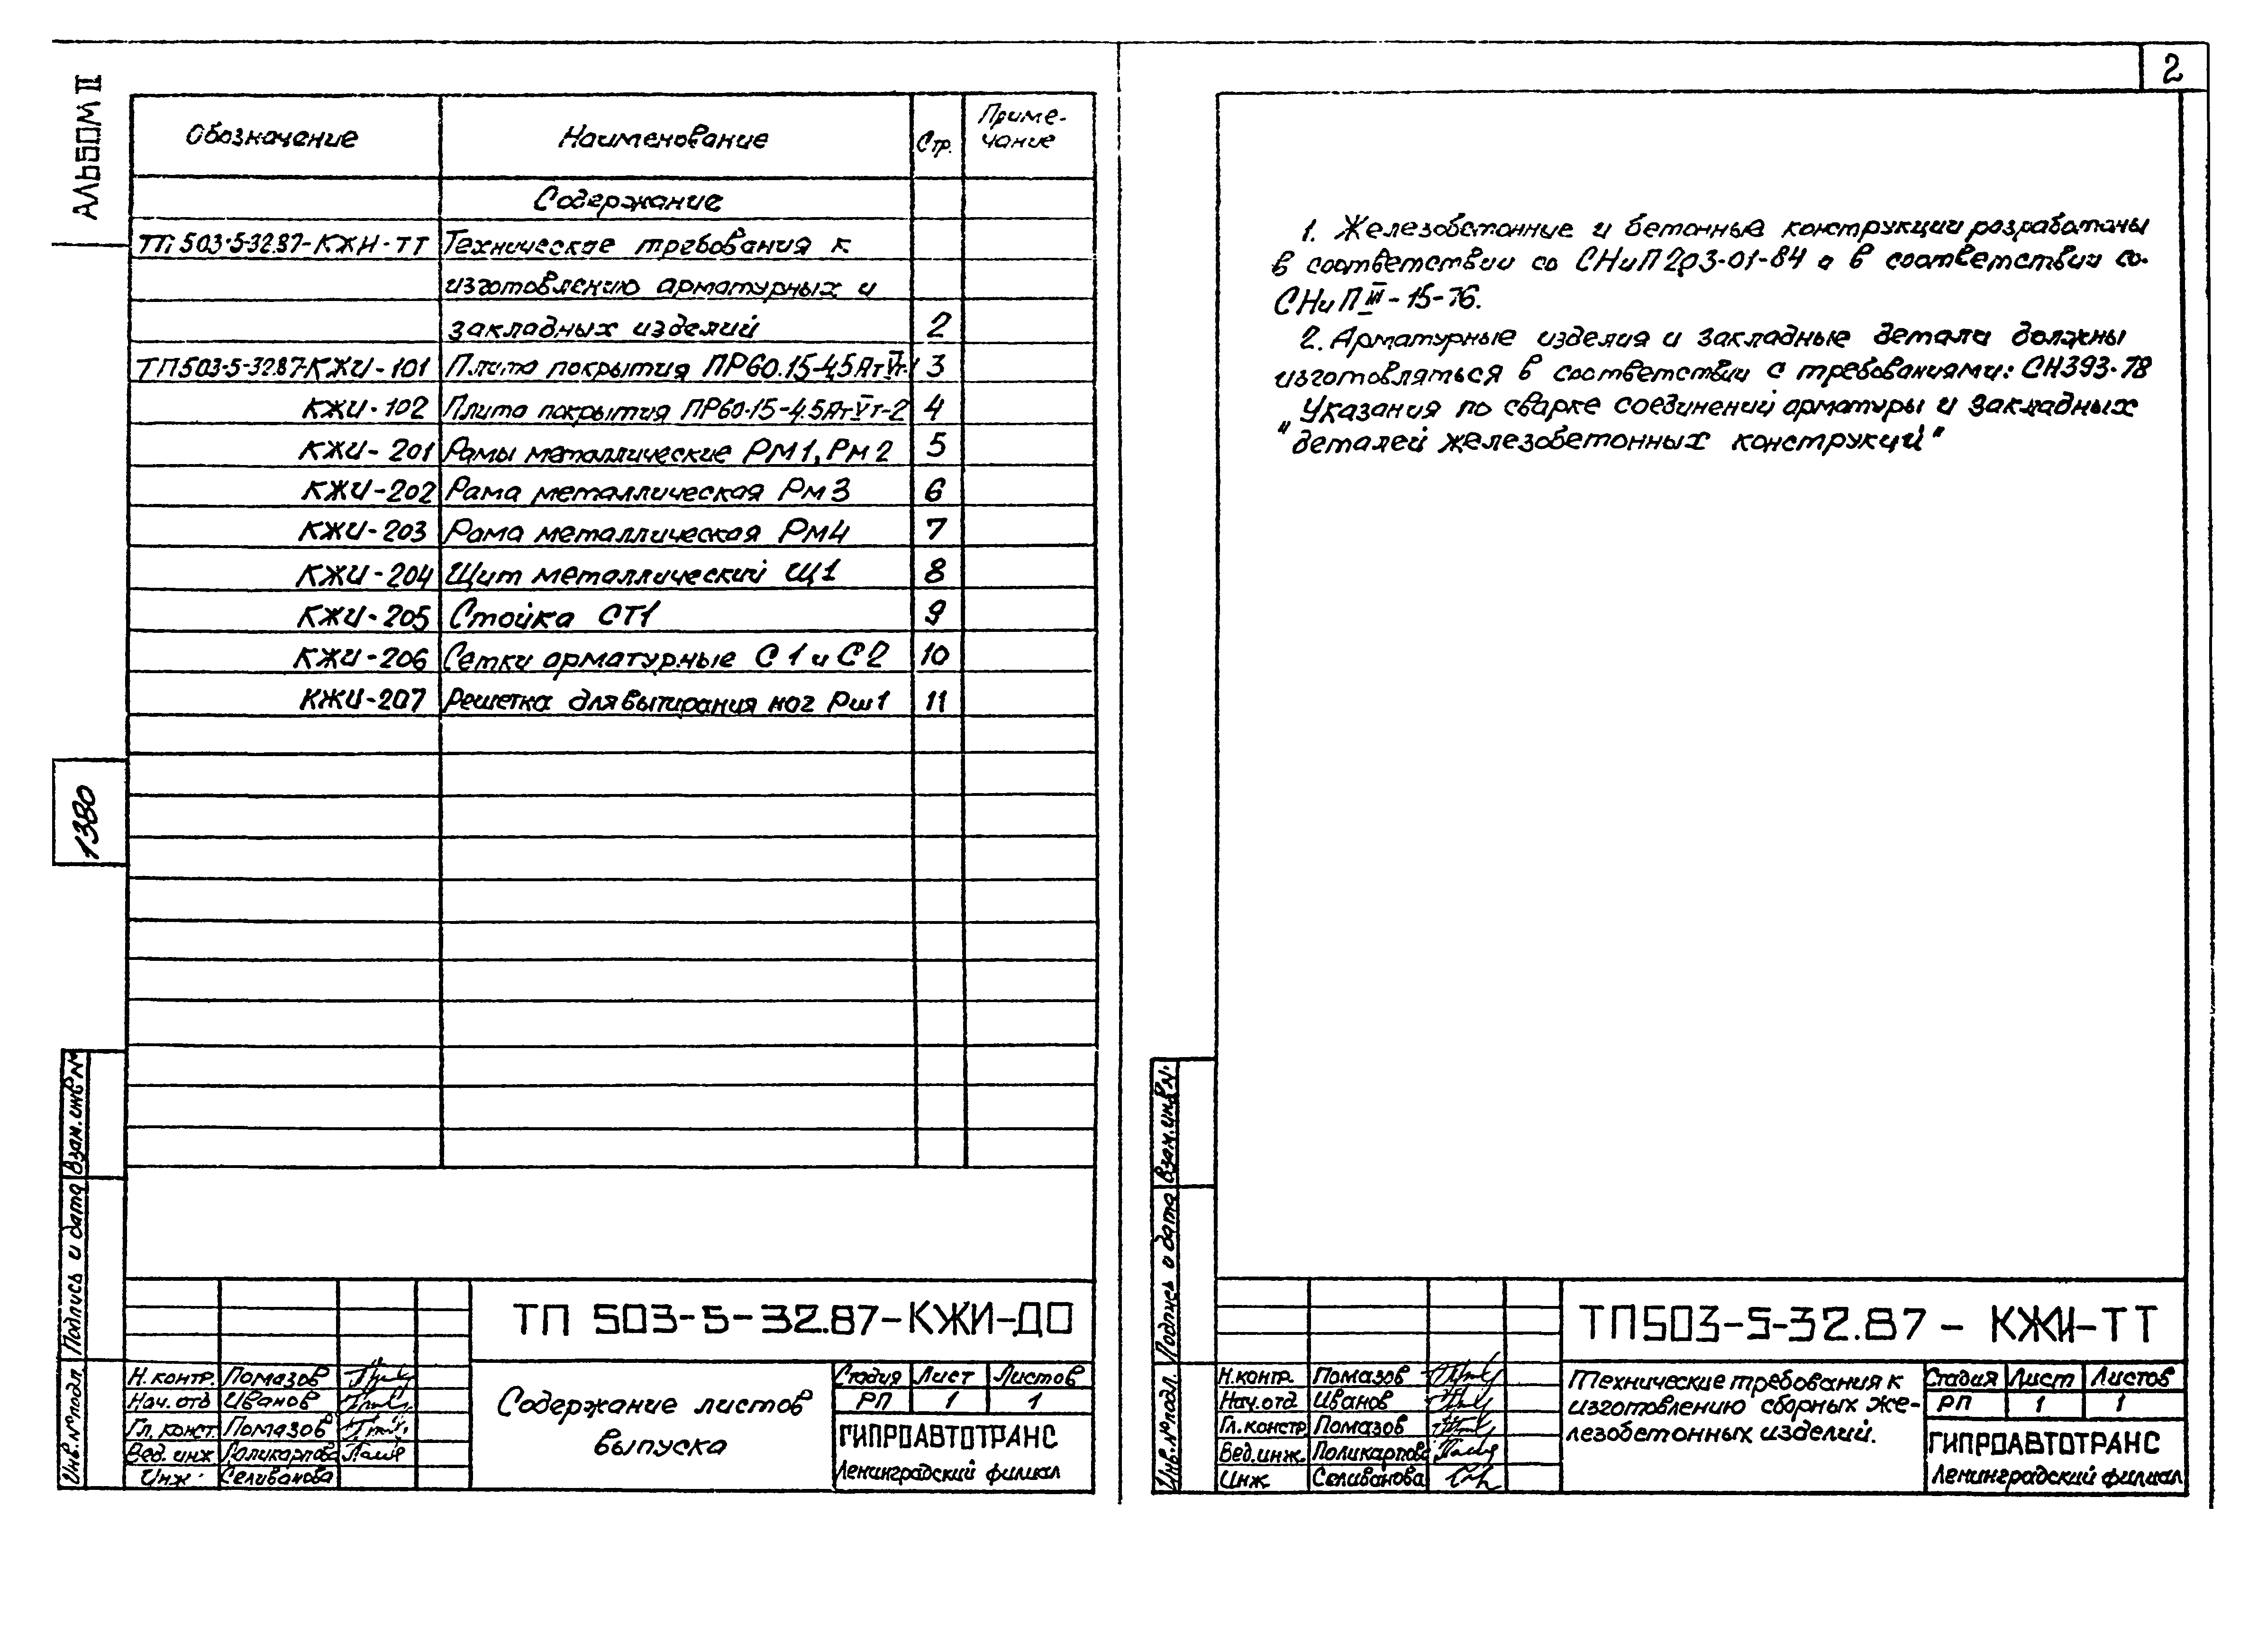 АЛЬБОМ II
Обозначение Наименование Стр. Приме-
чание
Содержание
ТП 503-5-32.87-КЖИ-ТТ Технические требования к
изготовлению арматурных и
закладных изделий 2
ТП503-5-32.87-КЖИ-101 Плита покрытия ПР60.15-4,5АтVт-1 3
КЖИ-102 Плита покрытия ПР60.15-4.5АтVт-2 4
КЖИ-201 Рамы металлические РМ1, Рм2 5
КЖИ-202 Рама металлическая Рм3 6
КЖИ-203 Рама металлическая РМ4 7
КЖИ-204 Щит металлический Щ1 8
КЖИ-205 Стойка СТ1 9
КЖИ-206 Сетки арматурные С1 и С2 10
КЖИ-207 Решетка для вытирания ног Рш1 11
1380
Взам.инв№
Подпись и дата
Инв.№подл.
ТП 503-5-32.87-КЖИ-ДО
Н.контр. Помазов
Нач.отд Иванов
Гл.конст. Помазов
Вед.инж Поликарпова
Инж. Селиванова
Содержание листов
выпуска
Стадия Лист Листов
РП 1 1
ГИПРОАВТОТРАНС
Ленинградский филиал
2
1. Железобетонные и бетонные конструкции разработаны
в соответствии со СНиП 2.03-01-84 и в соответствии со
СНиП III-15-76.
2. Арматурные изделия и закладные детали должны
изготовляться в соответствии с требованиями: СН393-78
Указания по сварке соединений арматуры и закладных
"деталей железобетонных конструкций"
Взам.инв№.
Подпись и дата
Инв.№подл.
ТП503-5-32.87-КЖИ-ТТ
Н.контр. Помазов
Нач.отд Иванов
Гл.констр Помазов
Вед.инж. Поликарпова
Инж Селиванова
Технические требования к
изготовлению сборных же-
лезобетонных изделий.
Стадия Лист Листов
РП 1 1
ГИПРОАВТОТРАНС
Ленинградский филиал